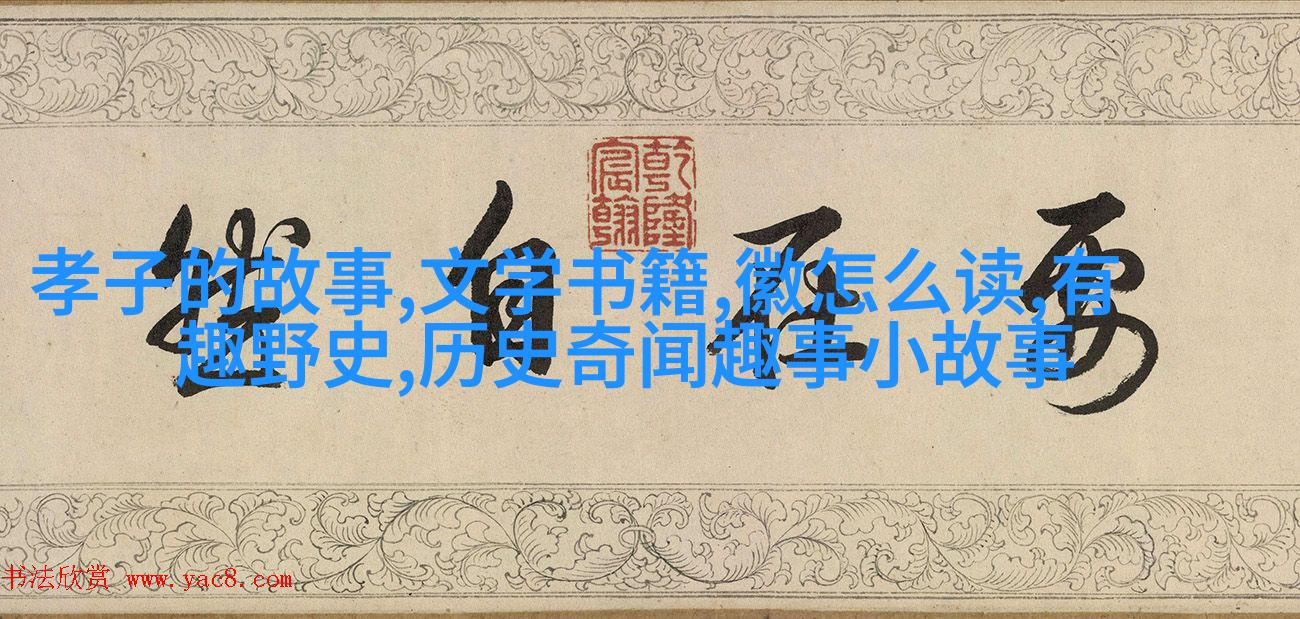 乾隆
宸翰
孝子的故事,文学书籍,徽怎么读,有
趣野史,历史奇闻趣事小故事
书法欣赏 www.yac8.com